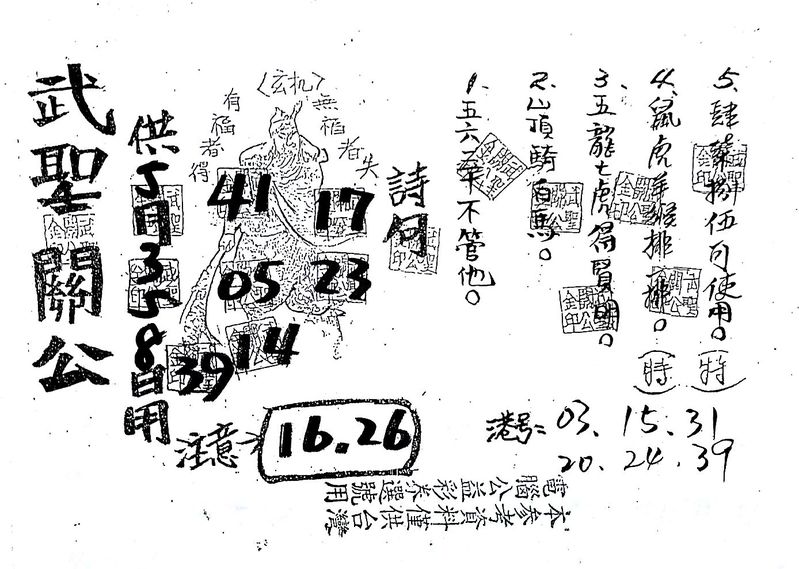 武聖關公
供5月3 5 8日用
〈玄机〉
有福者得
無福者失
41
17
05
23
39
14
注意
16.26
詩句
1. 五六二平不管他。
2. 山頂騎白馬。
3. 五龍七虎得賢明。
4. 鼠虎羊猴排一排。(時)
5. 肆柒捌伍可使用。(特)
港号: 03、15、31
20、24、39
本參考資料僅供台灣
電腦公益彩券選號用